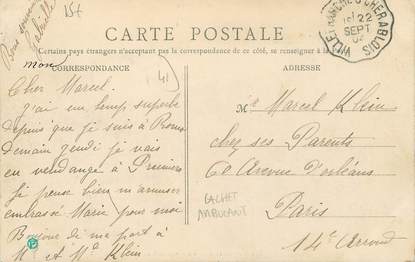 15f
Bons souvenirs
Gabrielle
CARTE POSTALE
Certains pays étrangers n'acceptent pas la correspondance de ce côté, se renseigner à la
CORRESPONDANCE
ADRESSE
VILLEFRANCHE-S-CHER A BLOIS
22
SEPT
mon
Cher Marcel
41
J'ai un temps superbe
depuis que je suis à
Demain jeudi je vais
en vendange à Pruniers
Je pense bien m'amuser
embrasse Marie pour moi
Bonjour de ma part à
Mr et Me Klein
Mr Marcel Klein
chez ses Parents
Avenue d'orléans
Paris
14e Arrond
CACHET
AMBULANT